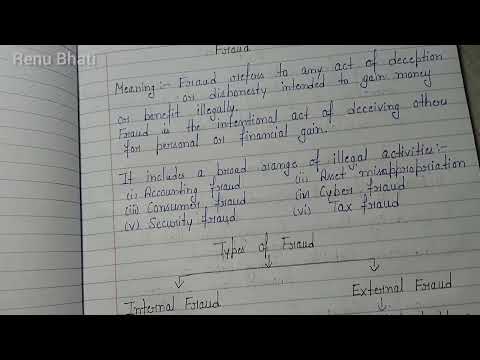 Renu Bhati
Fraud
Meaning:- Fraud refers to any act of deception
or dishonesty intended to gain money
or benefit illegally.
Fraud is the intentional act of deceiving others
for personal or financial gain.
It includes a broad range of illegal activities:-
(i) Accounting fraud (ii) Asset misappropriation
(iii) Consumer fraud (iv) Cyber fraud
(v) Security fraud (vi) Tax fraud
Types of Fraud
Internal Fraud External Fraud